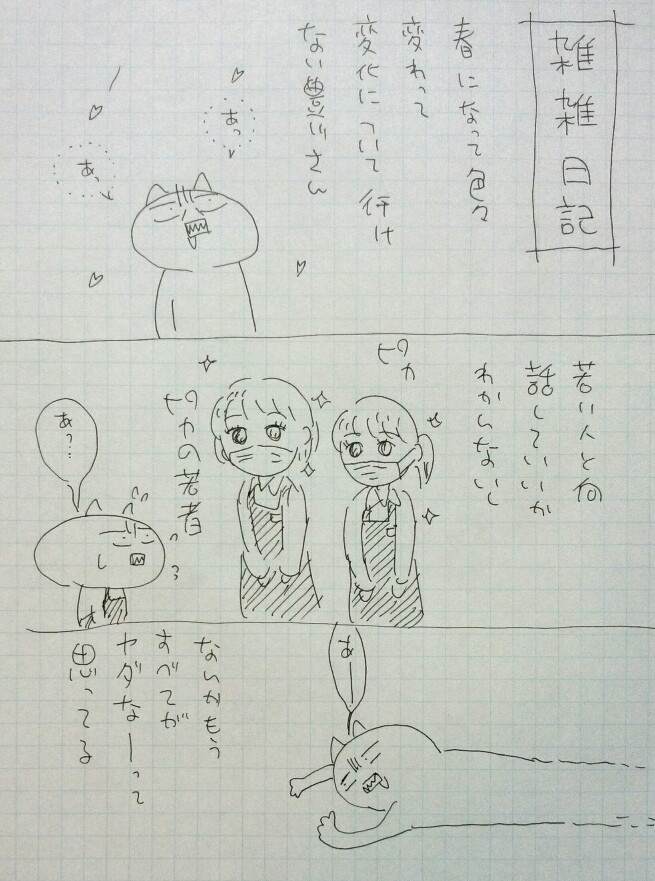 雑雑日記
春になって色々
変わって
変化について行け
ない豊川さん
あっ
あっ
若い人と何
話していいか
わかんないし
ピカ
ピカの若者
あ?…
ないかもう
すべてが
ヤダなーって
思ってる
あー